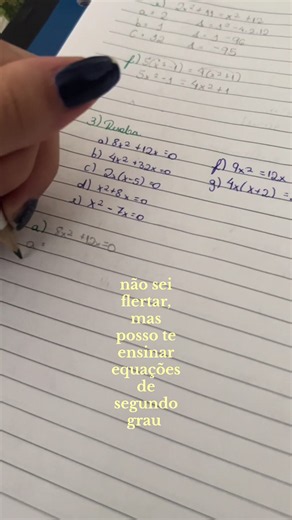 a=2
b=-1
c=-12
f) 5(x²-1) = 4(x²+1)
3) Resolva
a) 8x²+12x=0
b) 4x²+32x=0
c) 2x(x-5)=0
d) x²+8x=0
e) x²-7x=0
f) 9x²=12x
g) 4x(x+2)=
a) 8x²+12x=0
a=
não sei
flertar,
mas
posso te
ensinar
equações
de
segundo
grau